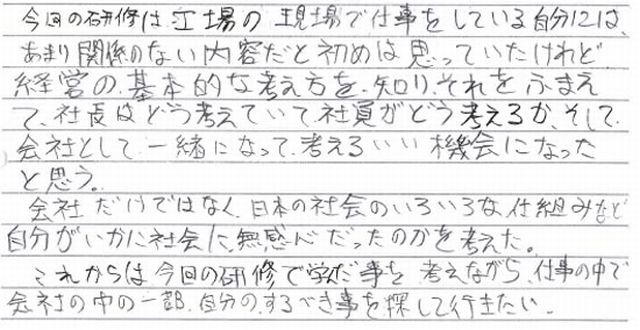 今回の研修は、工場の現場で仕事をしている自分には、
あまり関係のない内容だと初めは思っていたけれど
経営の基本的な考え方を知り、それをふまえ
て、社長はどう考えていて社員がどう考えるか、そして
会社として一緒になって、考えるいい機会になった
と思う。
会社だけではなく、日本の社会のいろいろな仕組みなど
自分がいかに社会に無感心だったのかを考えた。
これからは今回の研修で学んだ事を考えながら、仕事の中で
会社の中の一部、自分のするべき事を探して行きたい。